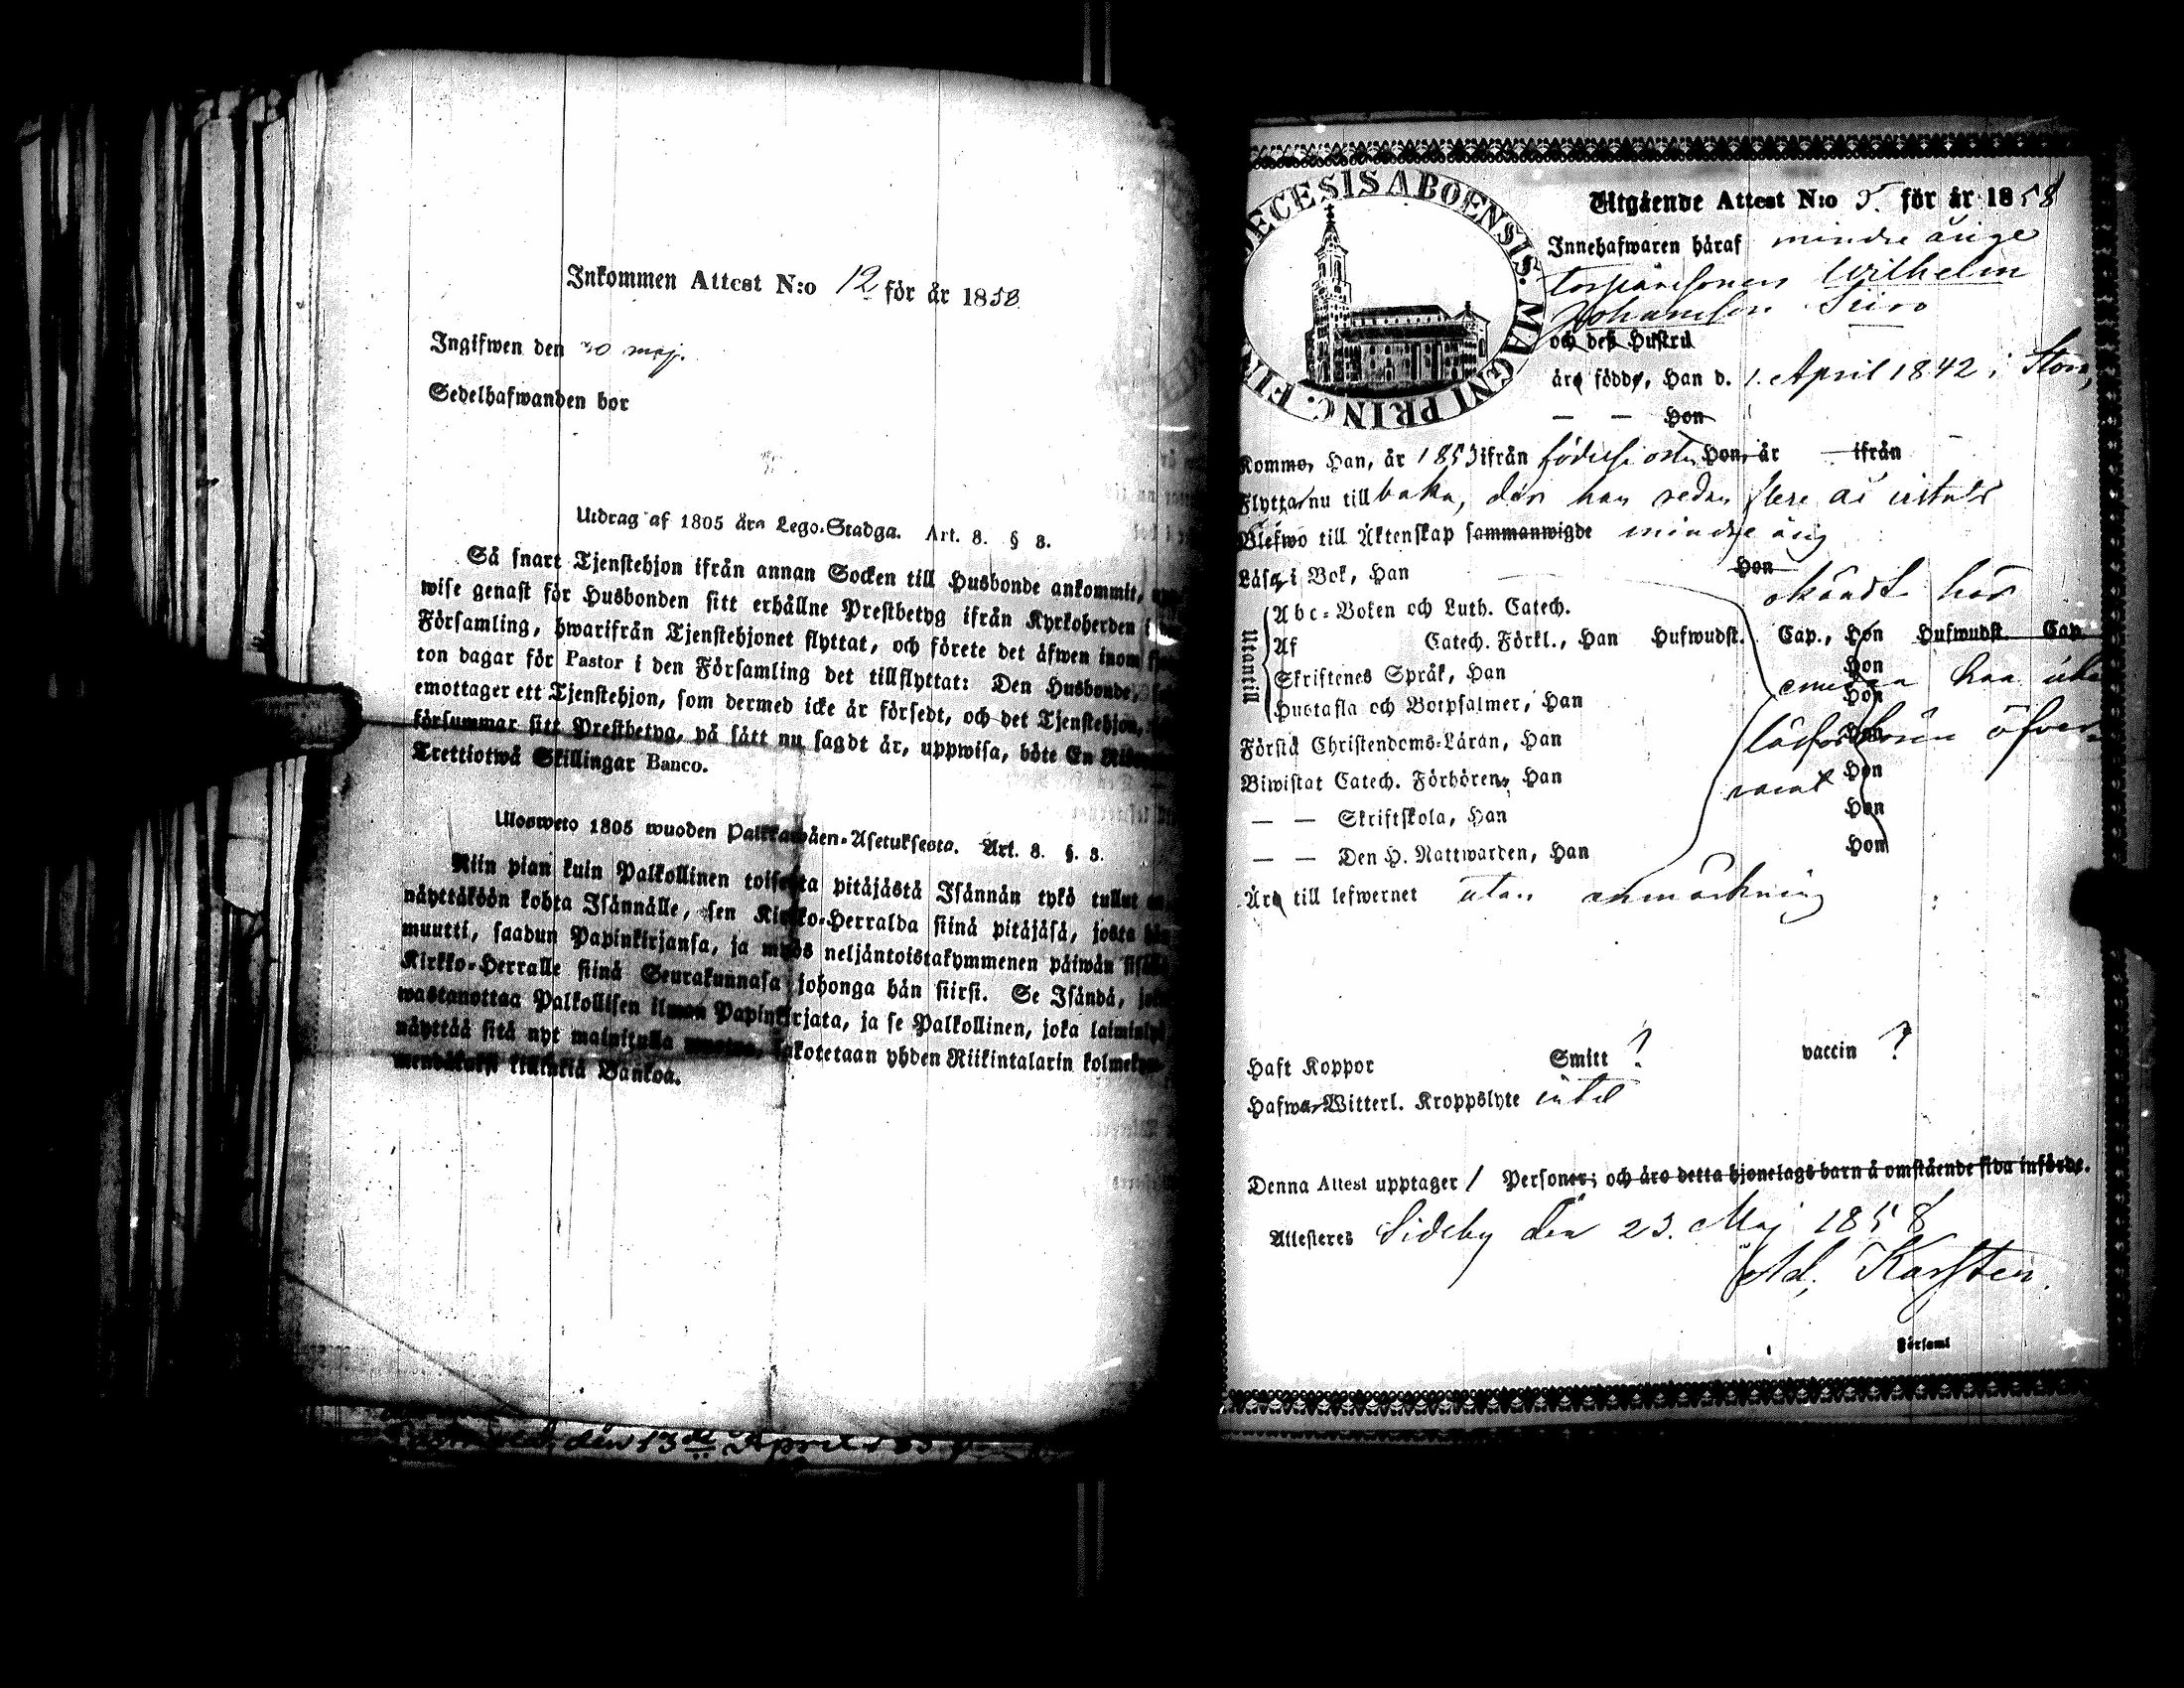 Inkommen Attest N:o 12 för år 1858
Ingifwen den 30 maj.
Sedelhafwanden bor
Utdrag af 1805 års Lego-Stadga. Art. 8. § 8.
Så snart Tjenstehjon ifrån annan Socken till Husbonde ankommit,
wise genast för Husbonden sitt erhållne Prestbetyg ifrån Kyrkoherden i
Församling, hwarifrån Tjenstehjonet flyttat, och förete det äfwen inom
ton dagar för Pastor i den Församling det tillflyttat: Den Husbonde,
emottager ett Tjenstehjon, som dermed icke är försedt, och det Tjenstehjon,
försummar sitt Prestbetyg, på sätt nu sagdt är, uppwisa, böte En
Trettiotwå Skillingar Banco.
Ulosweto 1805 wuoden Palkkawäen-Asetuksesta. Art. 8. §. 8.
Niin pian kuin Palkollinen toisesta pitäjästä Isännän tykö tullut on
näyttäköön kohta Isännälle, sen Kirkko-Herralda siinä pitäjäsä, josta hän
muutti, saadun Papinkirjansa, ja myös neljäntoistakymmenen päiwän
Kirkko-Herralle siinä Seurakunnasa johonga hän siirsi. Se Isändä,
wastanottaa Palkollisen ilman Papinkirjata, ja se Palkollinen, joka
näyttää sitä nyt mainitulla sakotetaan yhden Riikintalarin
Bankoa.
den 13de April
DIECESIS ABOENSIS. MAGNI PRINC.
Utgående Attest N:o 5. för år 1858
Innehafwaren häraf mindre årige
torparesonen Wilhelm
Johansson
och deß Hustru
äro födde, Han d. 1. April 1842 i
— — Hon
Kommo, Han, år 1853 ifrån födelse orten Hon, år — ifrån —
Flytta nu till baka, der han redan flere år vistats
Blefwo till Äktenskap sammanwigde mindre årig
Läsa i Bok, Han Hon
okändt här
Utantill
Abc-Boken och Luth. Catech.
Af Catech. Förkl., Han Hufwudst. Cap., Hon Hufwudst. Cap.
Skriftenes Språk, Han Hon
emedan han icke
Hustafla och Botpsalmer, Han Hon
Förstå Christendoms-Läran, Han Hon
läsförhören öfver-
Biwistat Catech. Förhören, Han Hon
varit
— — Skriftskola, Han Hon
— — Den H. Nattwarden, Han Hon
Äro till lefwernet utan anmärkning
Haft Koppor Smitt ? vaccin ?
Hafwa Witterl. Kroppslyte intet
Denna Attest upptager 1 Personer; och äro detta hjonelags barn å omstående sida införde.
Attesteres Sideby den 23. Maj 1858
Ad. Karsten.
Församl